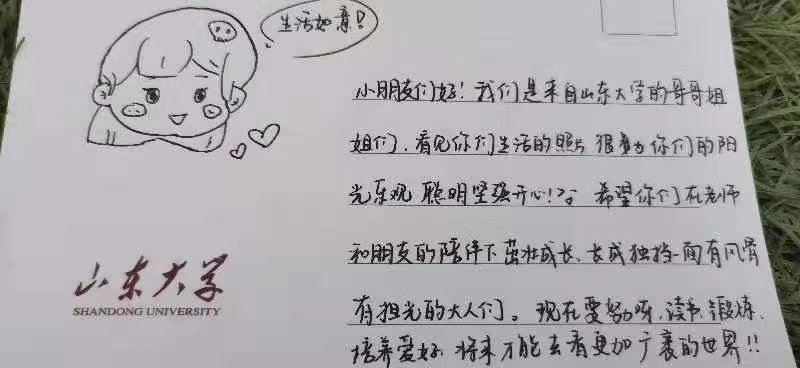 生活如意!
小朋友们好!我们是来自山东大学的哥哥姐
姐们,看见你们生活的照片 很为你们的阳
光乐观 聪明坚强开心! 希望你们在老师
和朋友的陪伴下茁壮成长、长成独挡一面有风骨
有担光的大人们。现在要努力呀,读书、锻炼、
培养爱好 将来才能去看更加广袤的世界!!
山东大学
SHANDONG UNIVERSITY